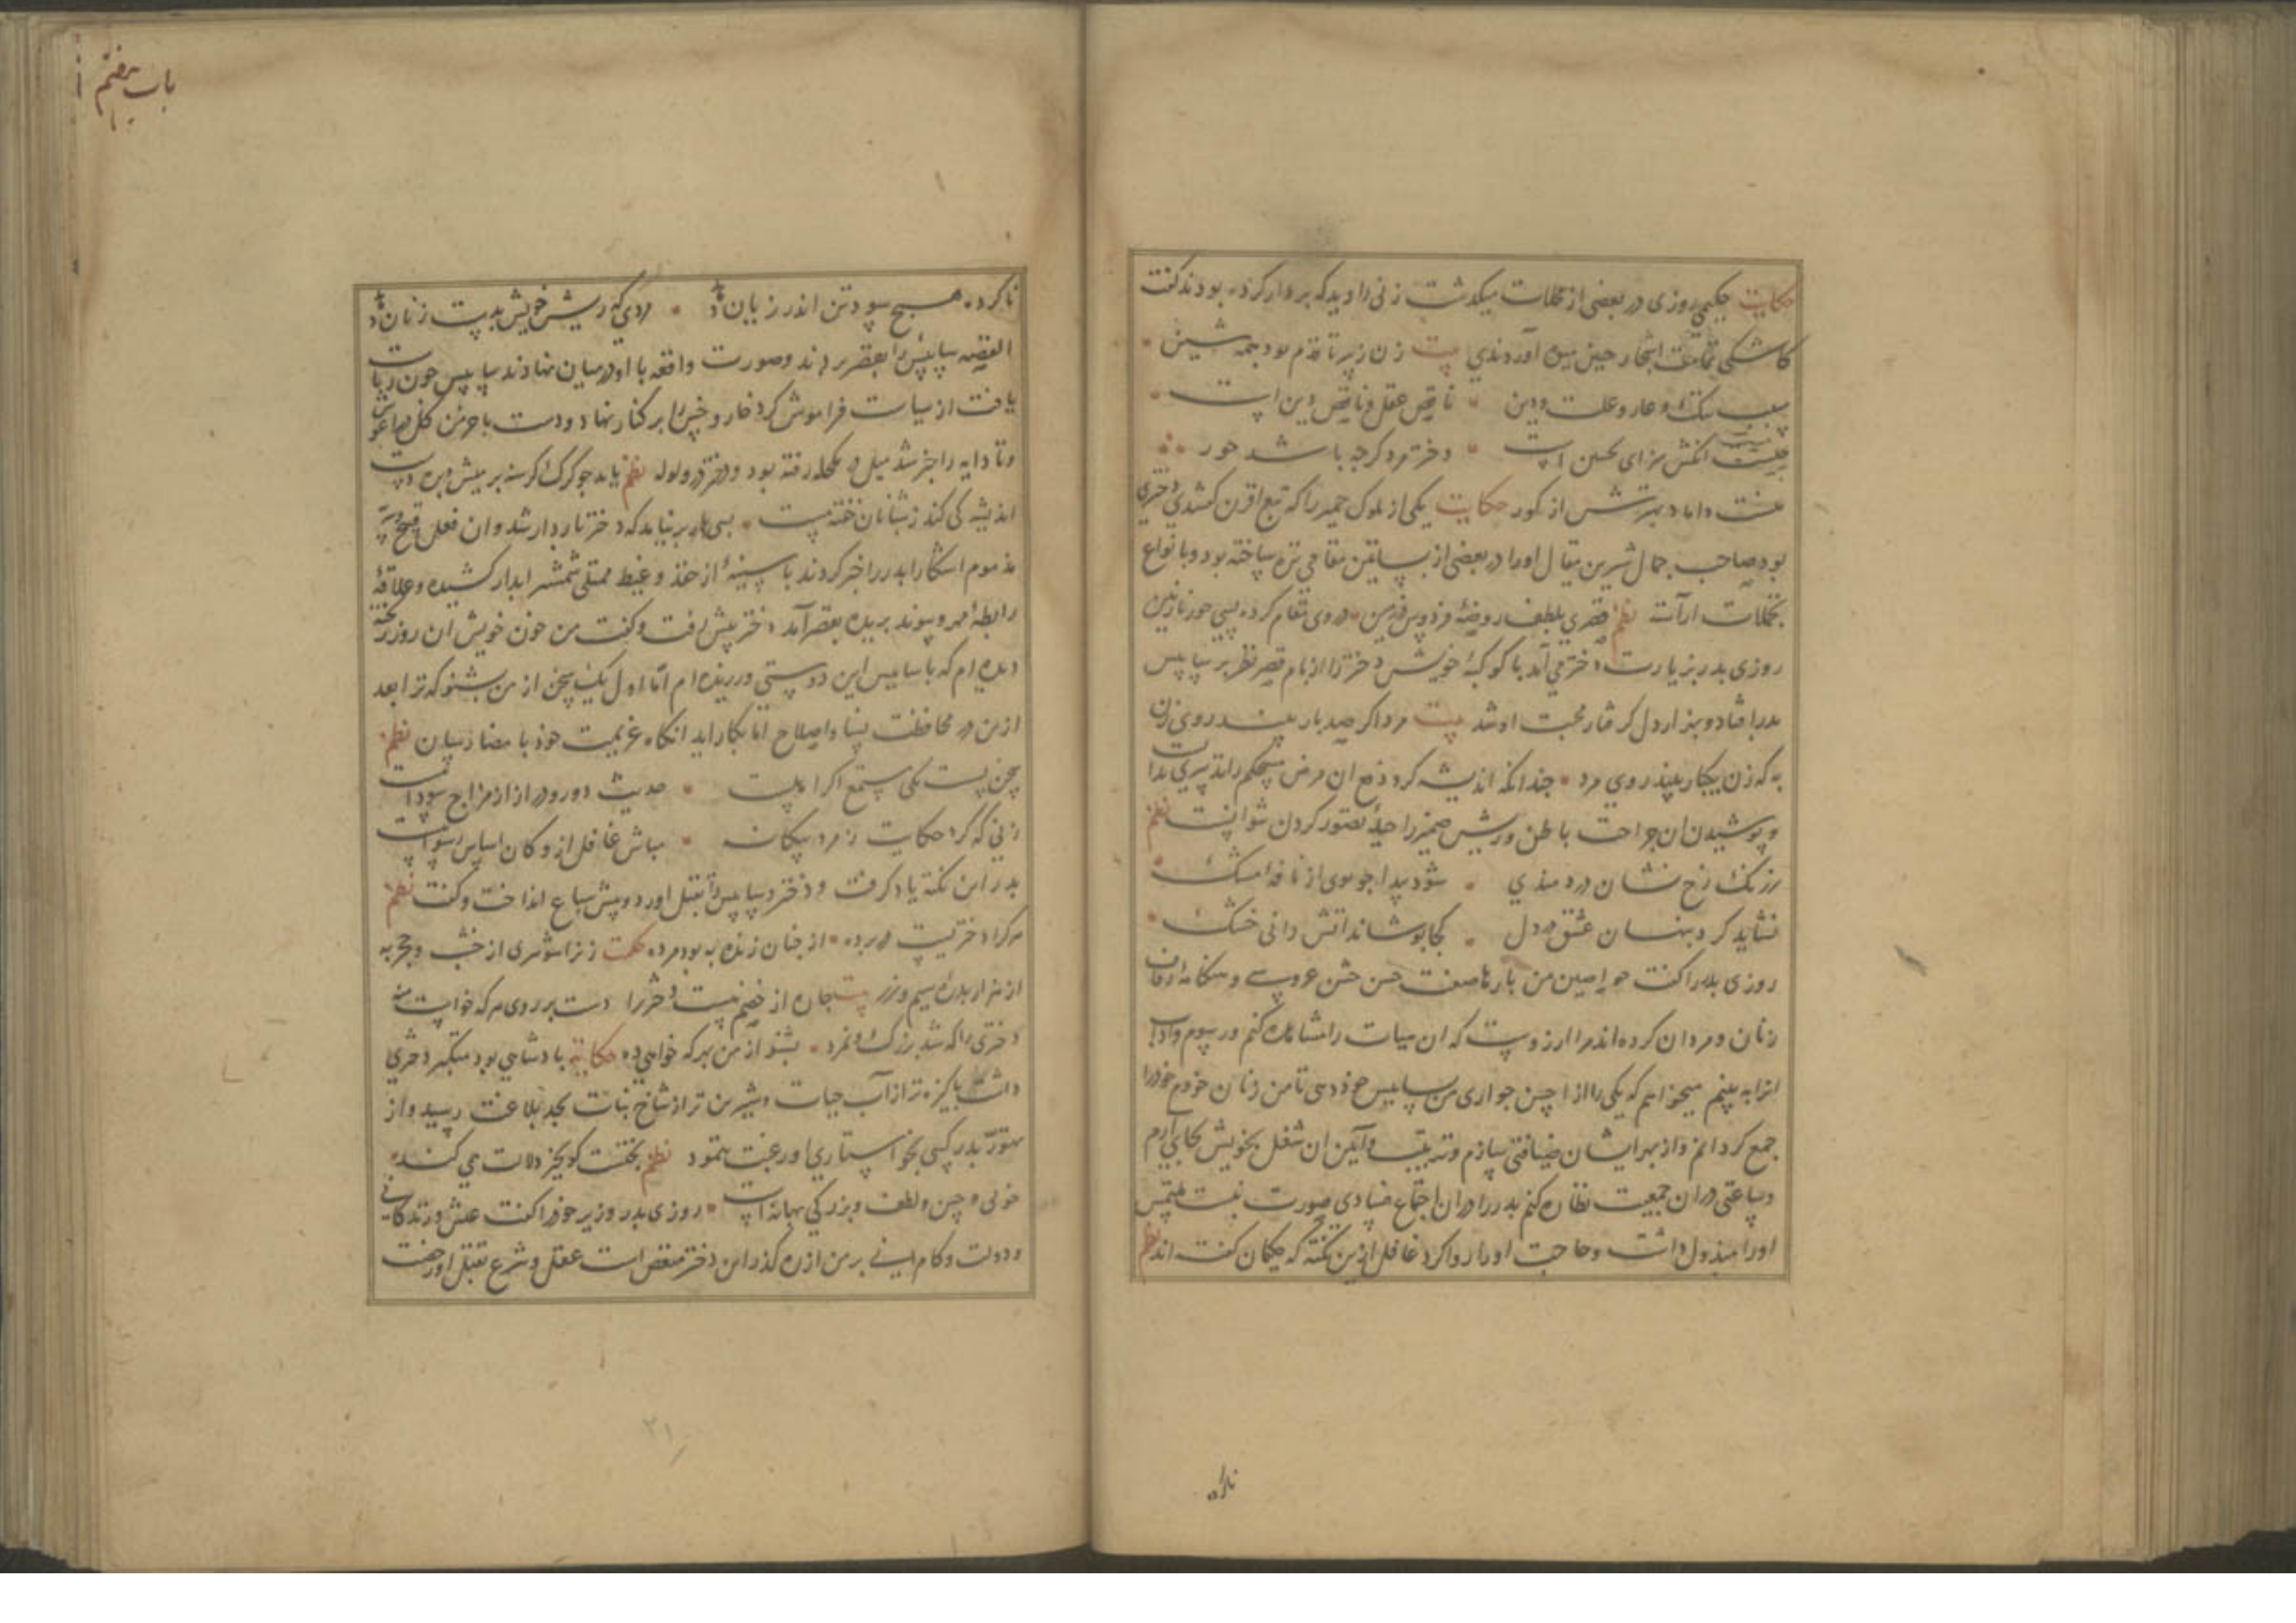 حکایت حکیمی روزی در بعضی از محلات میگذشت زنی را دید که بر دار کرده بودند گفت
کاشکی تمامت اشجار چنین میوه آوردندی بیت زن ز سر تا قدم بود همه شین
سبب ننک و عار و علت و دین ناقص عقل و ناقص دین است
انکش سزای تحسین است دختر مرد کرچه باشد حور
داماد بهترش از کور حکایت یکی از ملوک حمیر را که تبع اقرن کفتندی دختری
بود صاحب جمال شیرین مقال او را در بعضی از بساتین مقامی نزه ساخته بود و بانواع
تکلفات آراسته نظم قصری بلطف روضهٔ فردوس در زمین در وی مقام کرده بسی حور نازنین
روزی پدر بزیارت دختر می آمد با کوکبهٔ خویش دختر را از بام قصر نظر بر سایس
پدر افتاد و بهزار دل گرفتار محبت او شد بیت مرد اگر صد بار بیند روی زن
به که زن یکبار بیند روی مرد چندانکه اندیشه کرد دفع آن مرض مستحکم را تدبیری ندانست
و پوشیدن آن جراحت باطن و ریش ضمیر را حیله تصور کردن نتوانست نظم
ز رنک رخ نشان دردمندی شود پیدا چو بوی از نافهٔ مشک
نشاید کرد پنهان عشق در دل کجا پوشاند آتش دانی خشک
روزی پدر را گفت حواصین من بارها صفت حسن جشن عروسی و هنکامه زفاف
زنان و مردان کرده اند مرا آرزوست که آن هیات را مشاهده کنم و رسوم و آداب
آنرا به بینم میخواهم که یکی را از احسن جواری من بسایس خود دهی تا من زنان خدم خود را
جمع گردانم و از بهر ایشان ضیافتی سازم و ترتیب و آیین آن شغل بخویش بجای آرم
و ساعتی در آن جمعیت نظاره کنم پدر را در آن اجتماع فسادی صورت نبست ملتمس
او را مبذول داشت و حاجت او را روا کرد غافل ازین نکته که حکیمان گفته اند نظم
باب هفتم
ناکرده هیچ سود تن اندر زیان دهد مردی که ریش خویش بدست زنان دهد
القصه سایس را بقصر بردند و صورت واقعه با او در میان نهادند سایس چون ریاست
یافت از سیاست فراموش کرد خار و خس را بر کنار نهاد و دست با خرمن گل در آغوش
و تا دایه را خبر شد میل در مکحله رفته بود و دختر در ولوله نظم باید چو گرک گرسنه بر میش دست
اندیشه کی کند ز شبانان خفته مست بسی بار بر نیامد که دختر باردار شد و آن فعل قبیح و سر
مذموم آشکارا پدر را خبر کردند با سینهٔ از حقد و غیظ ممتلی شمشیر آبدار کشیده و علاقهٔ
رابطهٔ مهر و پیوند بریده بقصر آمد دختر پیش رفت و گفت من خون خویش آن روز ریخته
دیده ام که با سایس این دوستی ورزیده ام اما اول یک سخن از من بشنو که ترا بعد
از من در محافظت نسا و اصلاح اما بکار آید آنکاه عزیمت خود بامضا رسان نظم
سخن بس است یکی مستمع اگر اهلست حدیث دور و دراز از مزاج سوداست
زنی که کرد حکایت ز مرد بیگانه مباش غافل ازو کان اساس رسواییست
پدر این نکته یاد گرفت و دختر و سایس را بقتل آورد و پیش سباع انداخت و گفت نظم
هر کرا دختریست در پرده از چنان زنده به بود مرده حکمت زن را شوهری از خشت و حجر به
از هزار بدره سیم و زر بیت جان از خصم نیست دختر را دست بر روی هر که خواست منه
دختری را که شد بزرگ و نمرد بشنو از من بهر که خواهی ده حکایة پادشاهی بود متکبر دختری
داشت پاکیزه تر از آب حیات و شیرین تر از شاخ نبات بحد بلاغت رسید و از
تهور پدر کسی بخواستاری او رغبت ننمود نظم
خوبی و حسن و لطف و بزرگی بهانه است روزی پدر وزیر خود را گفت عیش و زندگانی
و دولت و کامرانی بر من از ره گذر این دختر منغص است عقل و شرع بقتل او رخصت
۲۱
ناکرده